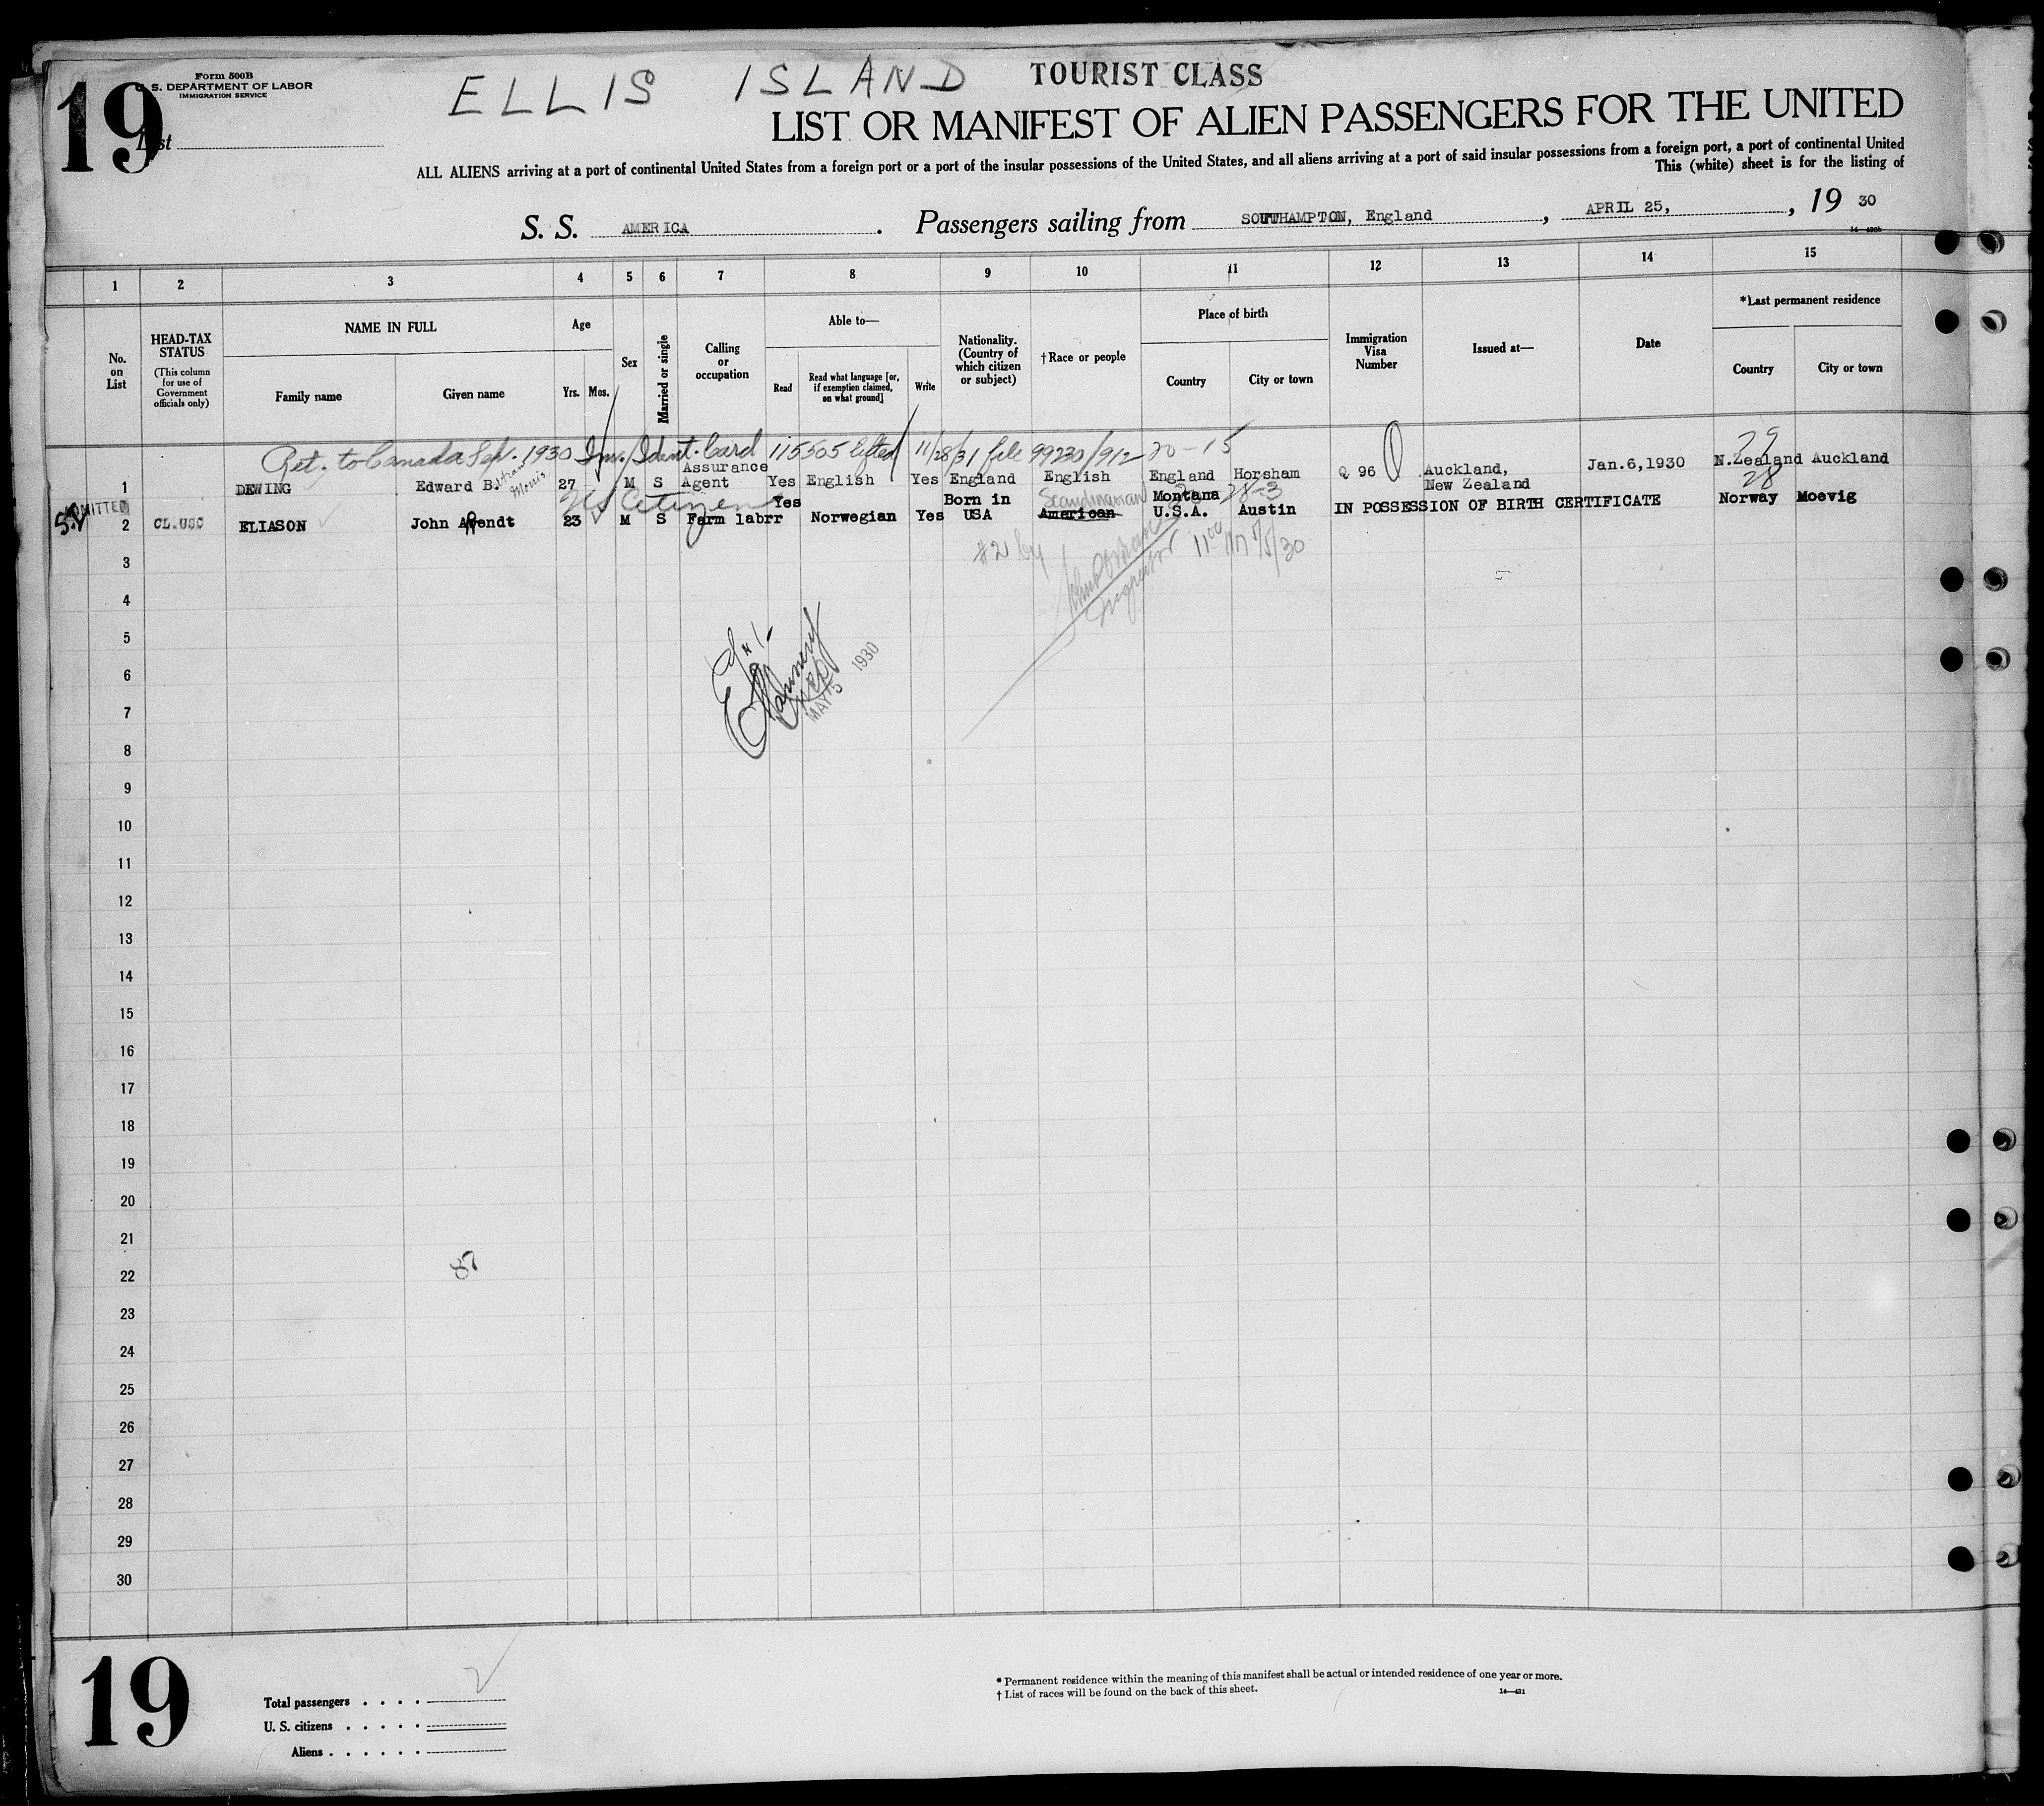 19
Form 500B
U. S. DEPARTMENT OF LABOR
IMMIGRATION SERVICE
List
ELLIS ISLAND
TOURIST CLASS
LIST OR MANIFEST OF ALIEN PASSENGERS FOR THE UNITED
ALL ALIENS arriving at a port of continental United States from a foreign port or a port of the insular possessions of the United States, and all aliens arriving at a port of said insular possessions from a foreign port, a port of continental United
This (white) sheet is for the listing of
S. S. AMERICA . Passengers sailing from SOUTHAMPTON, England , APRIL 25, , 19 30
14—430b
1 2 3 4 5 6 7 8 9 10 11 12 13 14 15
No. on List
HEAD-TAX STATUS
(This column for use of Government officials only)
NAME IN FULL
Family name
Given name
Age
Yrs. Mos.
Sex
Married or single
Calling or occupation
Able to—
Read
Read what language [or, if exemption claimed, on what ground]
Write
Nationality. (Country of which citizen or subject)
†Race or people
Place of birth
Country
City or town
Immigration Visa Number
Issued at—
Date
*Last permanent residence
Country
City or town
Ret. to Canada Sep. 1930 Im. Ident. Card 115505 lifted 11/28/31 file 99230/912 20-15
29
1 DEWING Edward B. 27 M S Assurance Agent Yes English Yes England English England Horsham Q 96 Auckland, New Zealand Jan.6,1930 N.Zealand Auckland
28
US Citizen
ADMITTED
2 CL.USC ELIASON John Arendt 23 M S Farm labrr Yes Norwegian Yes Born in USA Scandinavian American Montana U.S.A. 28-3 Austin IN POSSESSION OF BIRTH CERTIFICATE Norway Moevig
#2 by
Inspector
11 00 AM 5/5/30
3
4
5
6
MAY 5 1930
7
8
9
10
11
12
13
14
15
16
17
18
19
20
21
22
87
23
24
25
26
27
28
29
30
19
Total passengers . . . . 2
U. S. citizens . . . . .
Aliens . . . . . .
* Permanent residence within the meaning of this manifest shall be actual or intended residence of one year or more.
† List of races will be found on the back of this sheet.
14—431